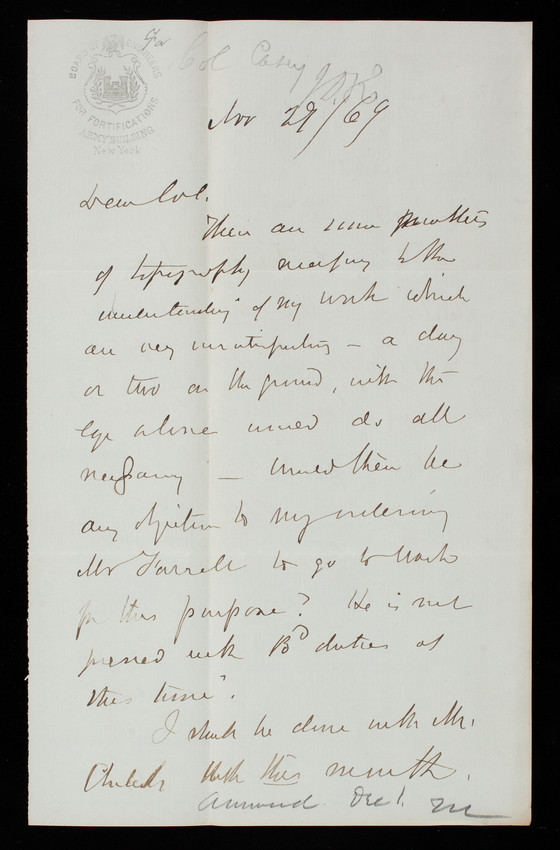 BOARD OF ENGINEERS
FOR FORTIFICATIONS
ARMY BUILDING
New York
Col Casey
Nov 29/69
Dear Col.
There are some matters
of topography necessary to the
understanding of my work which
are very unsatisfactory – a day
or two on the ground, with the
eye alone would do all
necessary – Would there be
any objection to my ordering
Mr Farrell to go to
for this purpose? He is not
pressed with Bd duties at
this time.
I shall be done with Mr.
with this month.
Answered Dec 1.